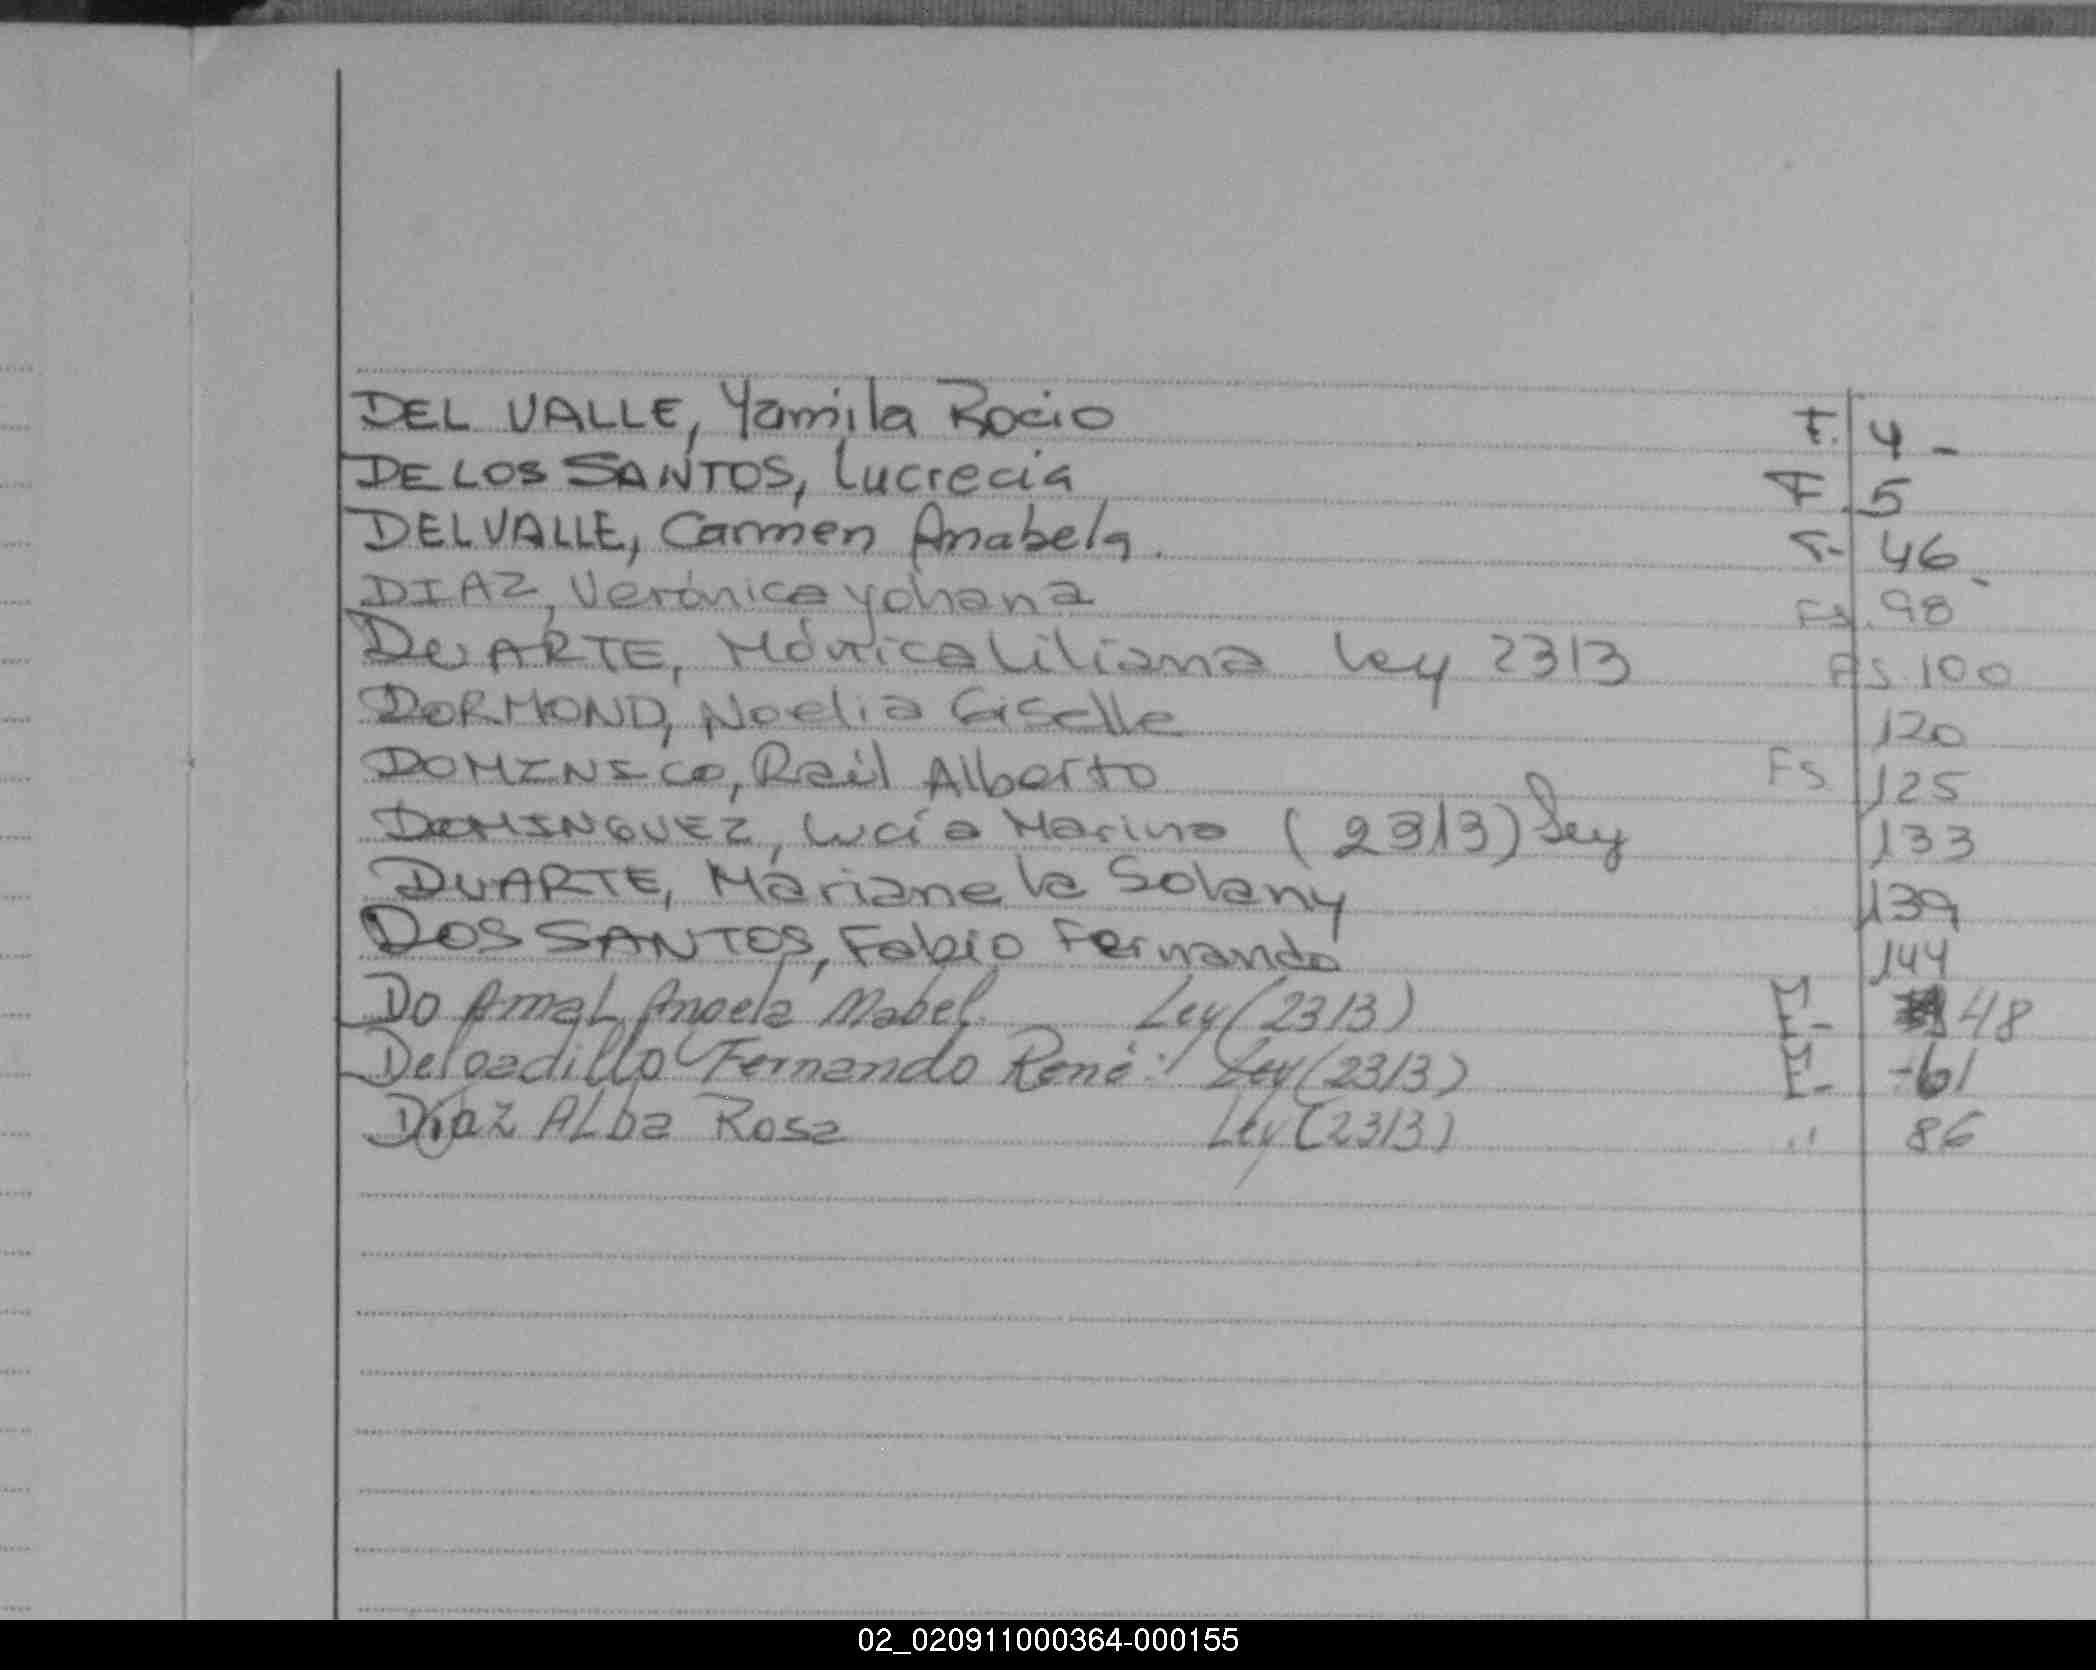 DEL VALLE, Yamila Rocio F. 4 -
DE LOS SANTOS, Lucrecia F 5
DELVALLE, Carmen Anabela. F- 46
DIAZ, Verónica yohana Fs. 98
DUARTE, Mónica Liliana Ley 2313 Fs. 100
DORMOND, Noelia Giselle 120
DOMINICO, Raúl Alberto Fs 125
DOMINGUEZ, Lucía Marina (2313) Ley 133
DUARTE, Marianela Solany 139
DOS SANTOS, Fabio Fernando 144
Do Amal Angela Mabel. Ley (2313) F- 48
Delgadillo Fernando René: Ley (2313) F- -61
Diaz Alba Rosa Ley (2313) " 86
02_020911000364-000155